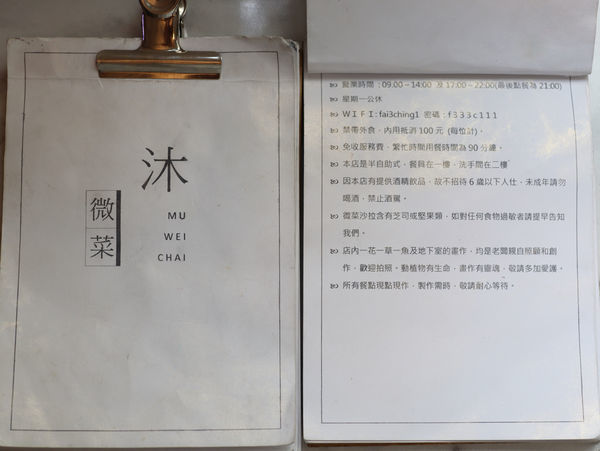 沐
微
菜
MU
WEI
CHAI
營業時間：09:00－14:00 及 17:00－22:00(最後點餐為 21:00)
星期一公休
ＷＩＦＩ: fai3ching1 密碼：f333c111
禁帶外食，內用抵消 100 元 (每位計)。
免收服務費，繁忙時間用餐時間為 90 分鐘。
本店是半自助式，餐具在一樓，洗手間在二樓
因本店有提供酒精飲品，故不招待 6 歲以下人仕，未成年請勿
喝酒，禁止酒駕。
微菜沙拉含有芝司或堅果類，如對任何食物過敏者請提早告知
我們。
店內一花一草一魚及地下室的畫作，均是老闆親自照顧和創
作，歡迎拍照。動植物有生命，畫作有靈魂，敬請多加愛護。
所有餐點現點現作，製作需時，敬請耐心等待。